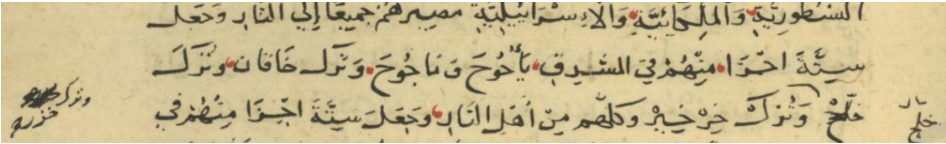 السنطورية والملحائية والاءسرائيلية مصيرهم جميعا إلي النار وجعل
ستة اجزا منهم في المشرق يأجوج وماجوج وترك خاقان وترك
خلج وترك خرخير وكلهم من أهل النار وجعل ستة اجزا منهم في
خلج